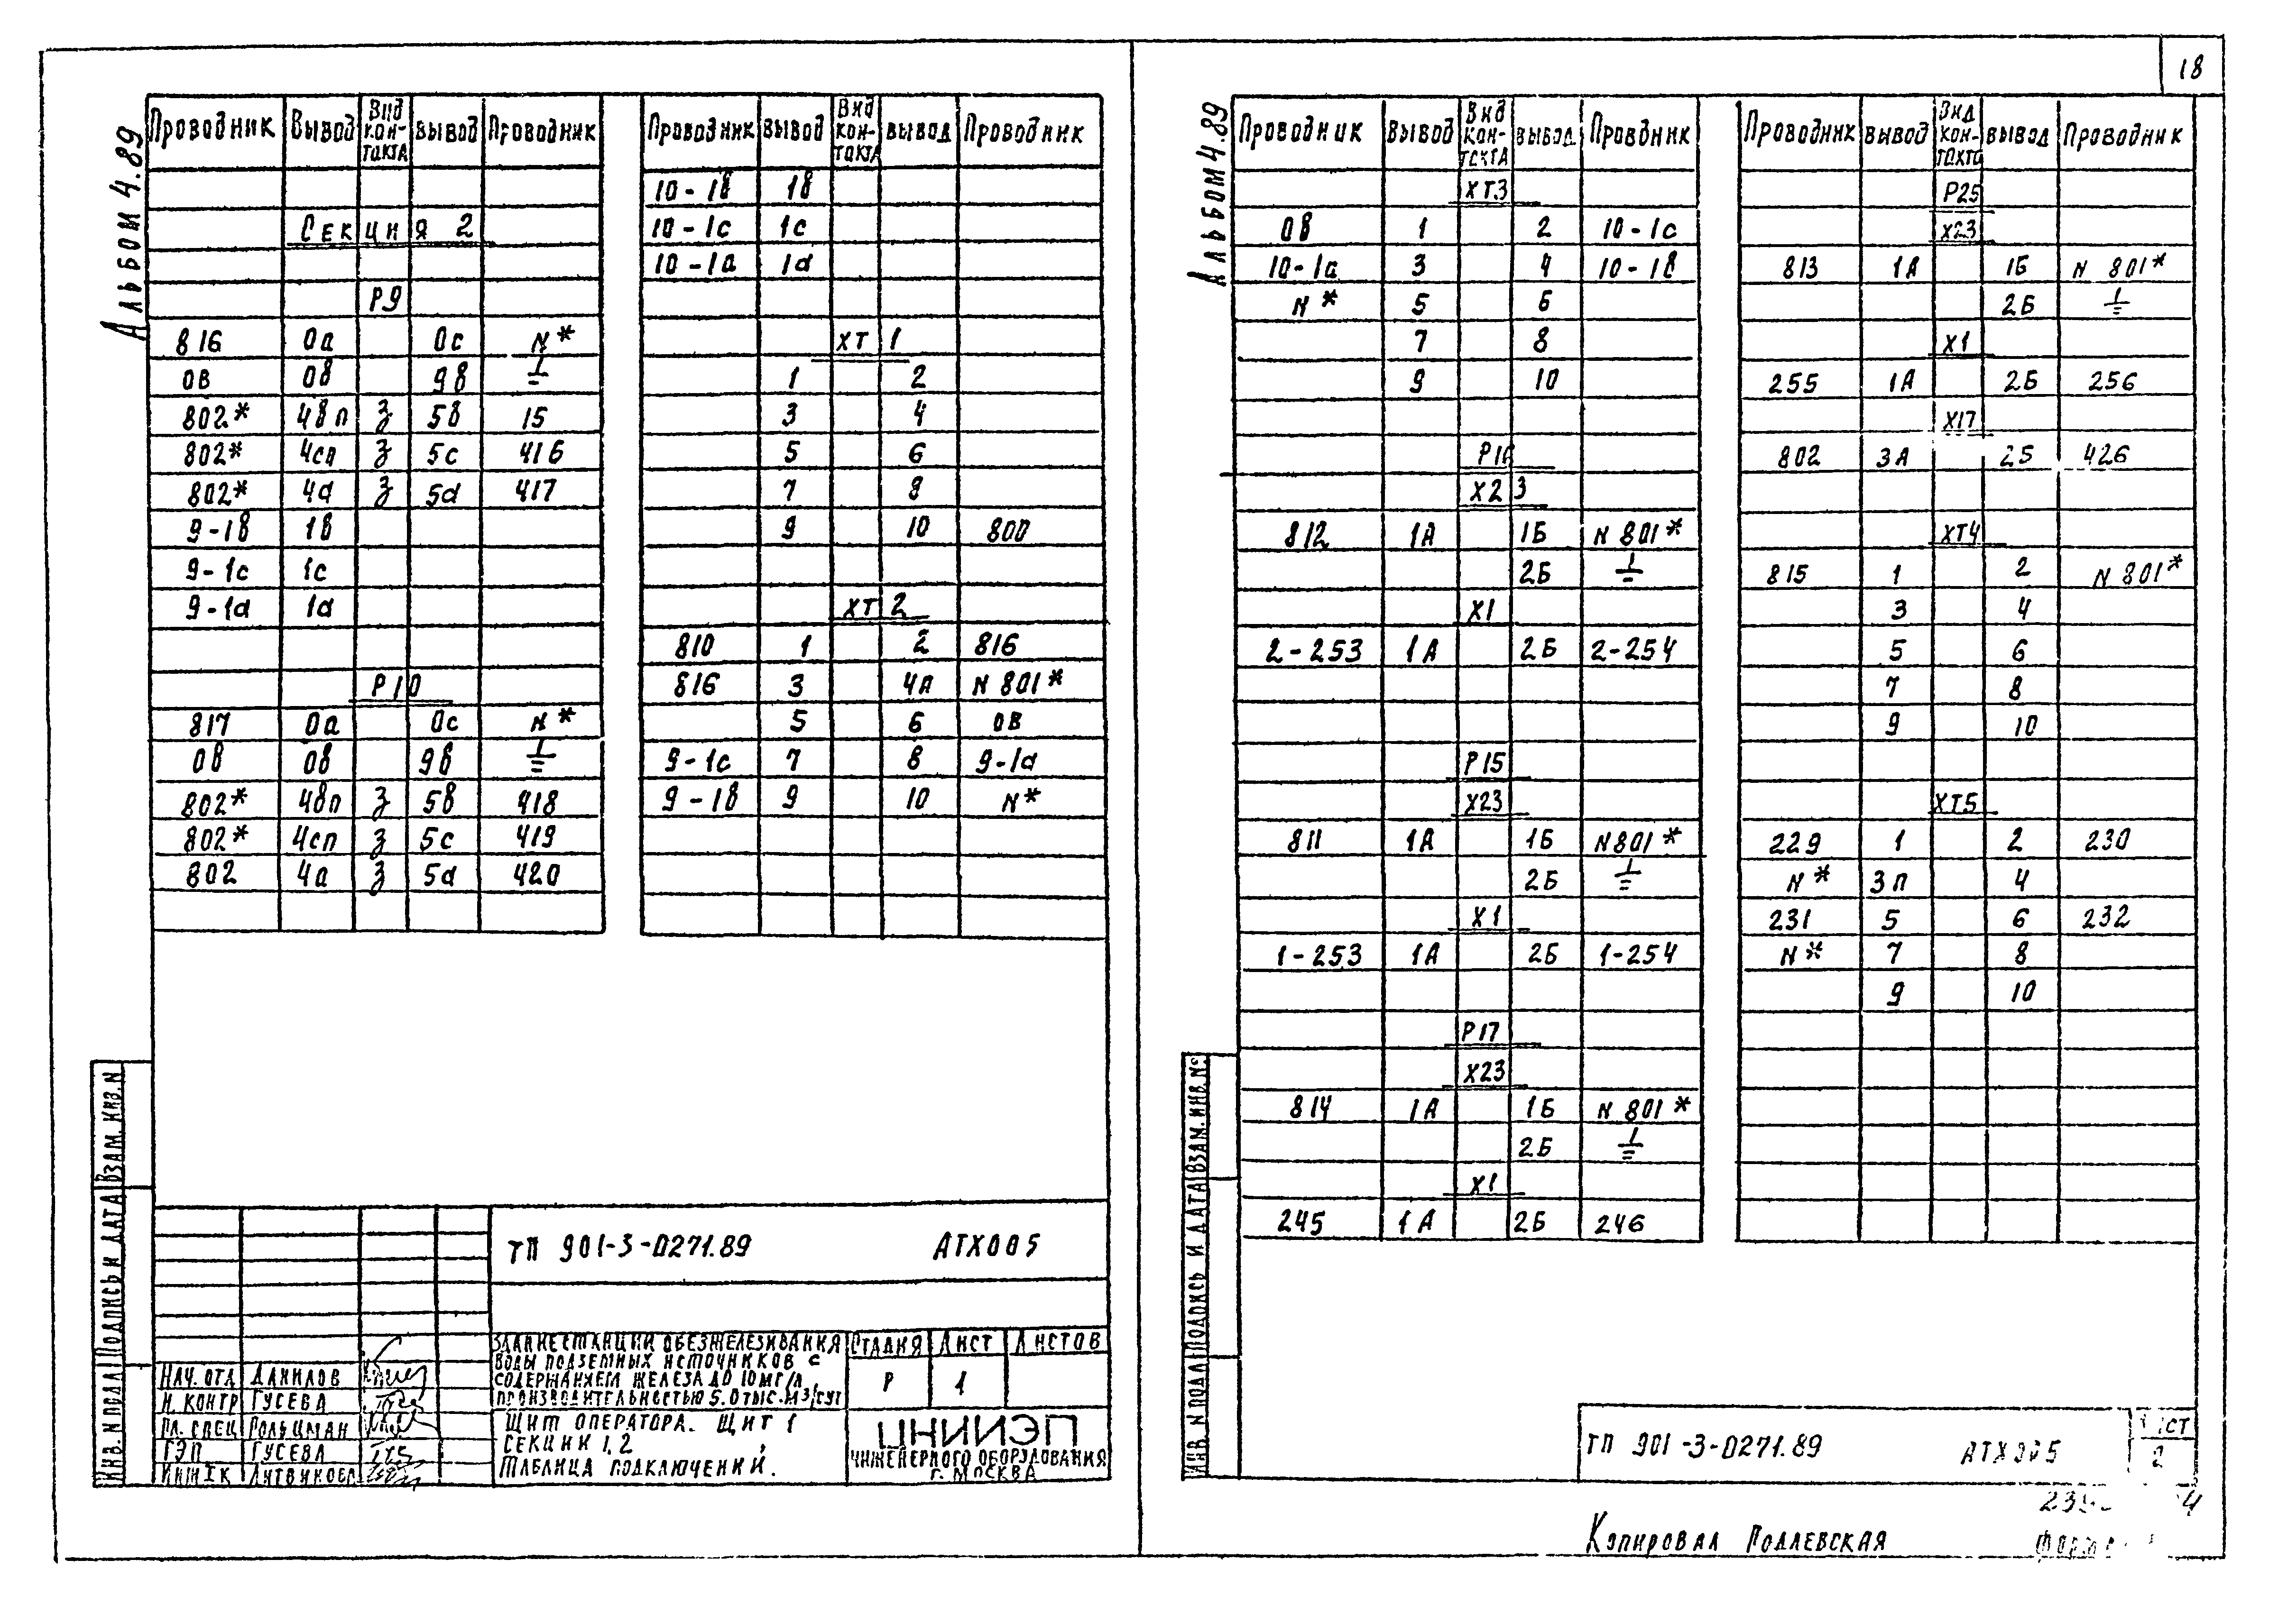 18
Альбом 4.89
Проводник Вывод Вид кон-такта вывод Проводник
Секция 2
Р9
816 0а 0с N*
0в 0в 9в ⏚
802* 4вп з 5в 15
802* 4сп з 5с 416
802* 4d з 5d 417
9-1в 1в
9-1с 1с
9-1d 1d
Р10
817 0а 0с N*
0в 0в 9в ⏚
802* 4вп з 5в 418
802* 4сп з 5с 419
802 4а з 5d 420
Проводник вывод Вид кон-такта вывод Проводник
10-1в 1в
10-1с 1с
10-1а 1d
ХТ1
1 2
3 4
5 6
7 8
9 10 800
ХТ2
810 1 2 816
816 3 4А N 801*
5 6 0В
9-1с 7 8 9-1d
9-1в 9 10 N*
Взам. инв. N
Подпись и дата
Инв. N подл
ТП 901-3-0271.89 АТХ005
Здание станции обезжелезивания
воды подземных источников с
содержанием железа до 10мг/л
производительностью 5.0 тыс.м3/сут
Стадия Лист Листов
Р 1
Нач. отд Данилов
Н. контр Гусева
Гл. спец Гольцман
ГЭП Гусева
Инж Iк
Щит оператора. Щит 1
Секции 1,2
Таблица подключений.
ЦНИИЭП
инженерного оборудования
г. Москва
Альбом 4.89
Проводник вывод Вид кон-такта вывод Провдник
ХТ3
0В 1 2 10-1с
10-1а 3 4 10-1в
N* 5 6
7 8
9 10
Р16
Х23
812 1А 1Б N 801*
2Б ⏚
Х1
2-253 1А 2Б 2-254
Р15
Х23
811 1А 1Б N801*
2Б ⏚
Х1
1-253 1А 2Б 1-254
Р17
Х23
814 1А 1Б N 801*
2Б ⏚
Х1
245 1А 2Б 246
Проводник вывод Вид кон-такта вывод Проводник
Р25
Х23
813 1А 1Б N 801*
2Б ⏚
Х1
255 1А 2Б 256
Х17
802 3А 2Б 426
ХТ4
815 1 2 N 801*
3 4
5 6
7 8
9 10
ХТ5
229 1 2 230
N* 3п 4
231 5 6 232
N* 7 8
9 10
Взам. инв. N°
Подпись и дата
Инв. N подл
ТП 901-3-0271.89 АТХ005
2
Копировал Подлевская